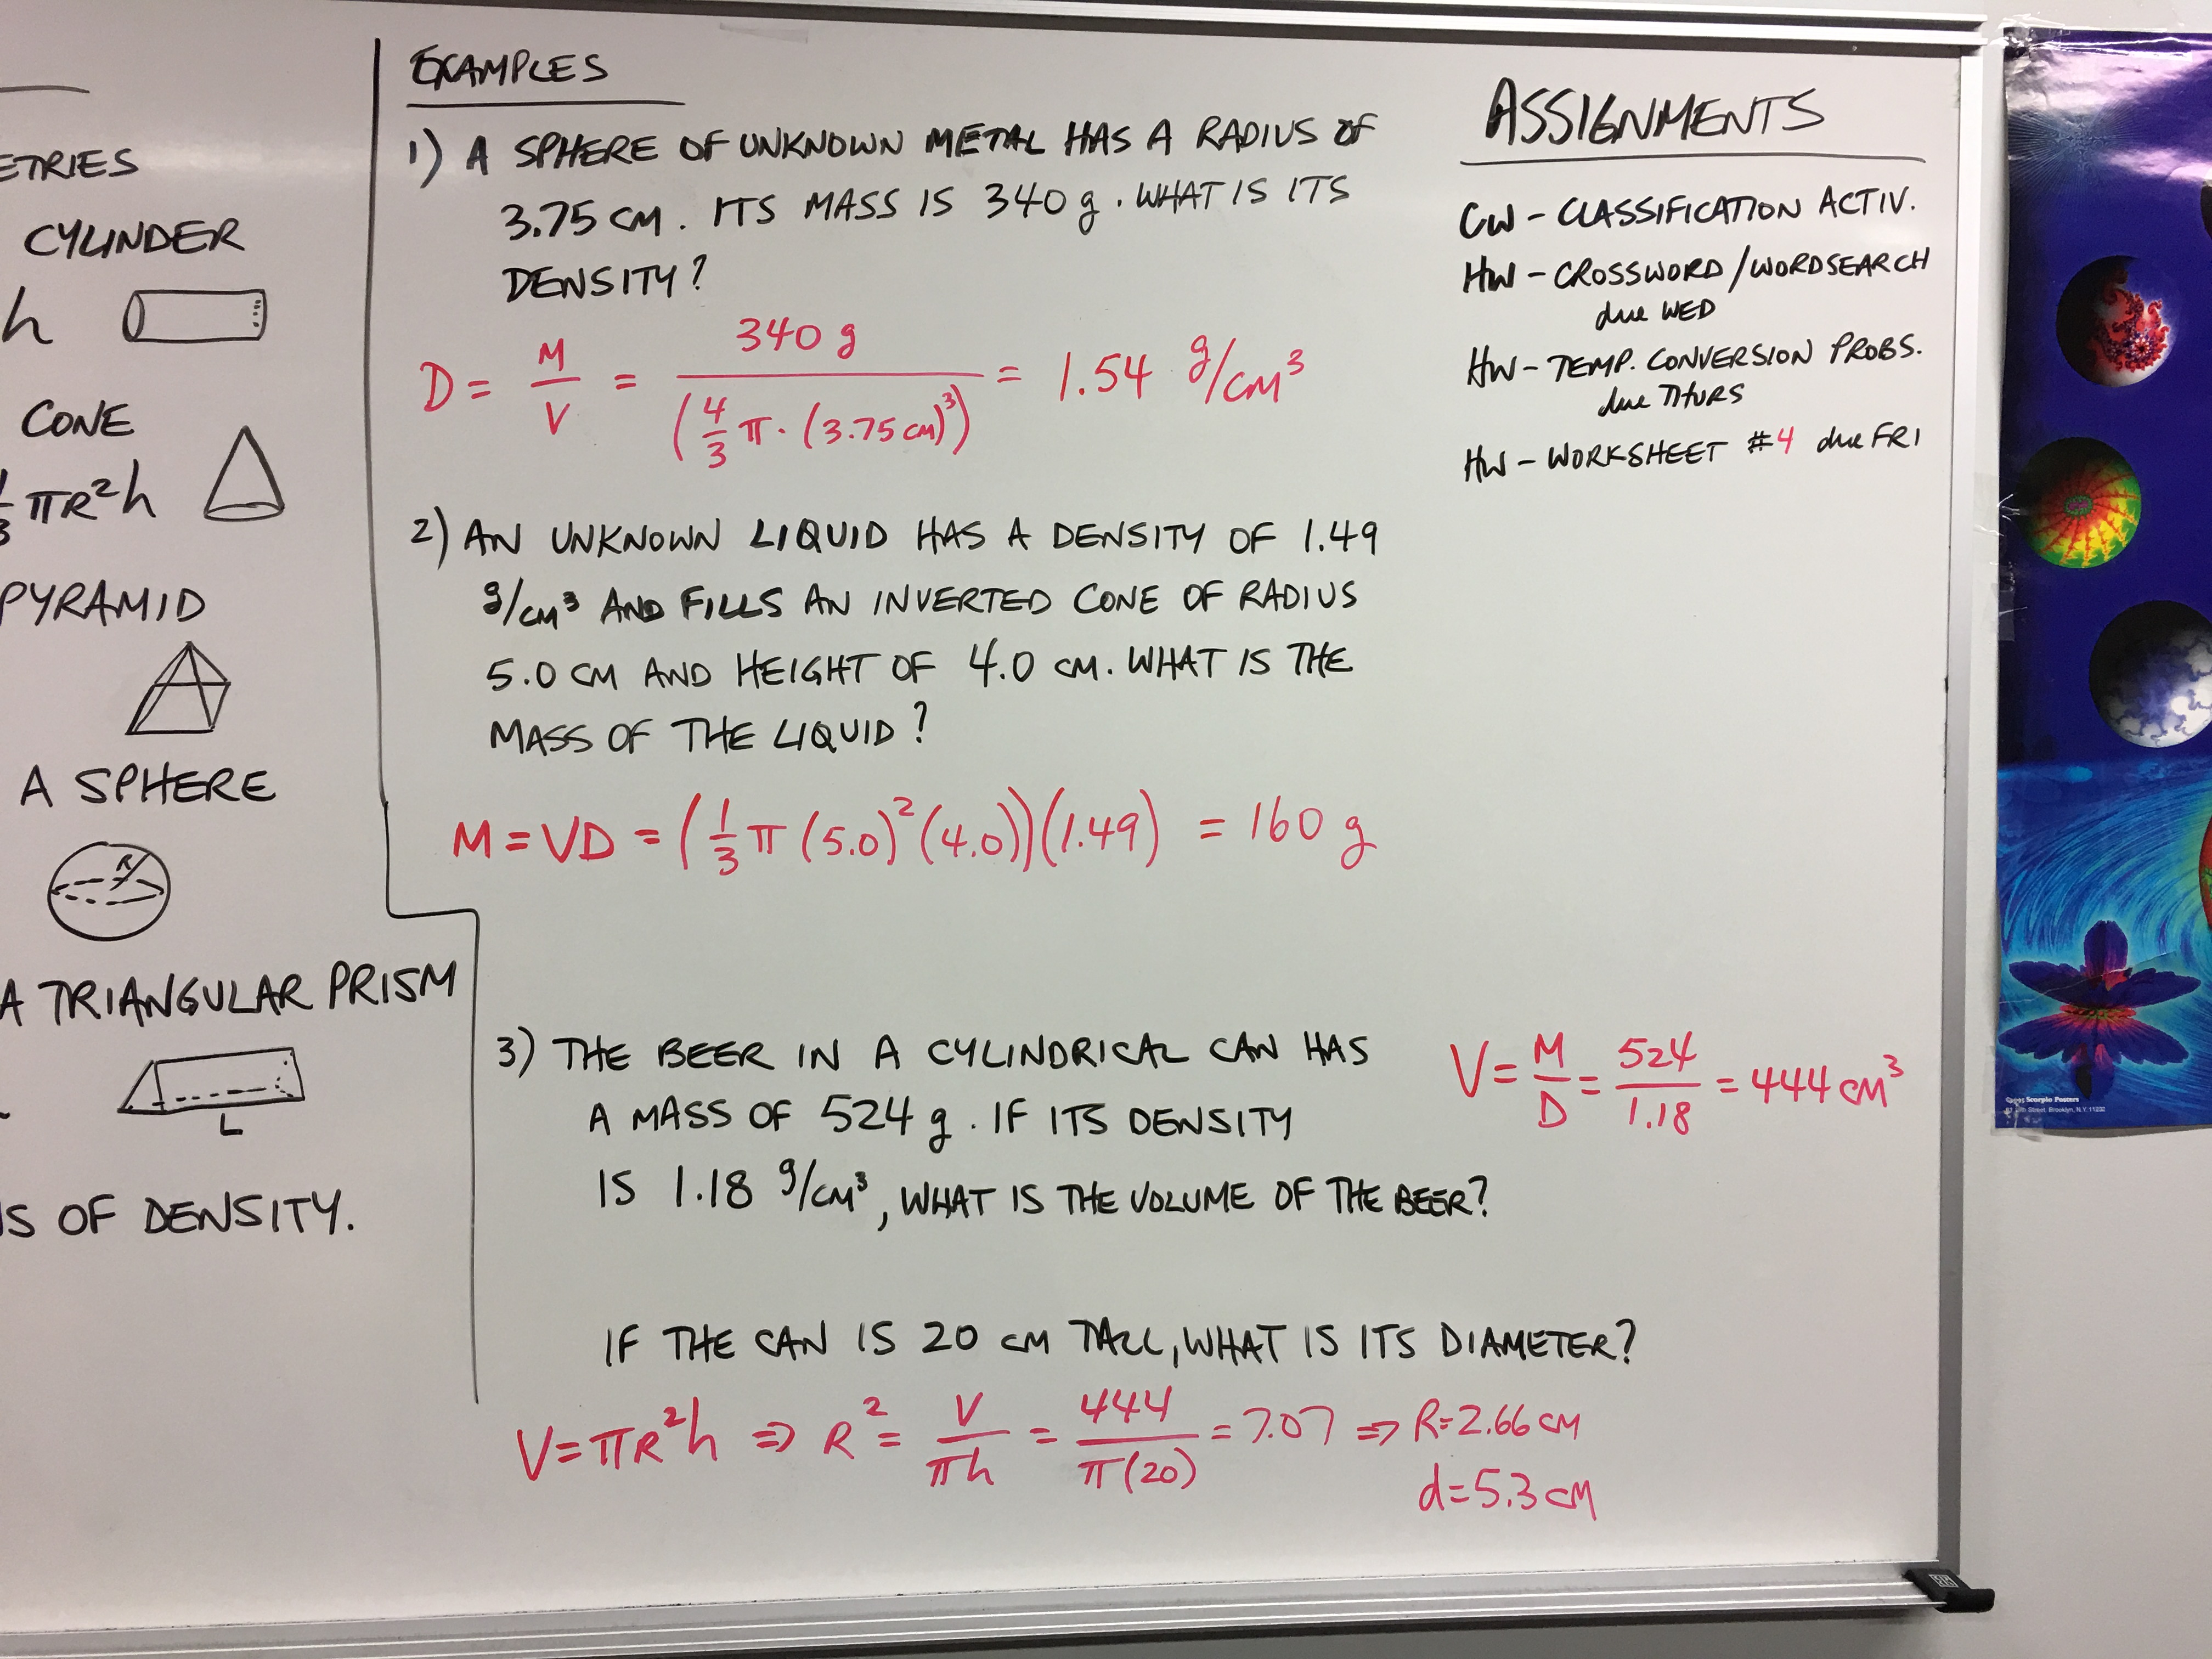 ETRIES
CYLINDER
h
CONE
1/3 πR²h
PYRAMID
A SPHERE
R
A TRIANGULAR PRISM
L
IS OF DENSITY.
EXAMPLES
1) A SPHERE OF UNKNOWN METAL HAS A RADIUS OF
3.75 CM. ITS MASS IS 340 g. WHAT IS ITS
DENSITY?
D = M/V = 340 g / (4/3 π · (3.75 cm)³) = 1.54 g/cm³
2) AN UNKNOWN LIQUID HAS A DENSITY OF 1.49
g/cm³ AND FILLS AN INVERTED CONE OF RADIUS
5.0 CM AND HEIGHT OF 4.0 CM. WHAT IS THE
MASS OF THE LIQUID?
M = VD = (1/3 π (5.0)² (4.0))(1.49) = 160 g
3) THE BEER IN A CYLINDRICAL CAN HAS
A MASS OF 524 g. IF ITS DENSITY
IS 1.18 g/cm³, WHAT IS THE VOLUME OF THE BEER?
V = M/D = 524/1.18 = 444 cm³
IF THE CAN IS 20 CM TALL, WHAT IS ITS DIAMETER?
V = πR²h ⇒ R² = V/πh = 444/π(20) = 7.07 ⇒ R = 2.66 cm
d = 5.3 cm
ASSIGNMENTS
CW - CLASSIFICATION ACTIV.
HW - CROSSWORD/WORDSEARCH
due WED
HW - TEMP. CONVERSION PROBS.
due THURS
HW - WORKSHEET #4 due FRI
Scorpio Posters
Street, Brooklyn, N.Y. 11232